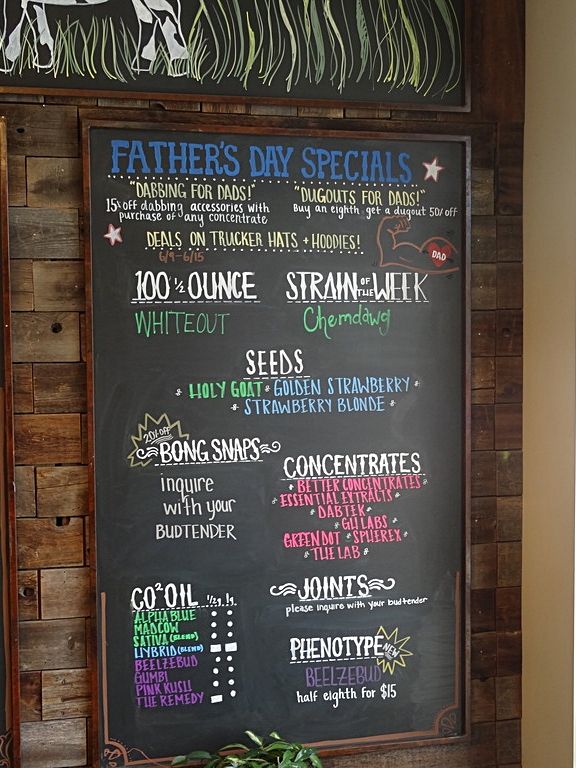 FATHER'S DAY SPECIALS
"DABBING FOR DADS!"
15% off dabbing accessories with
purchase of any concentrate
"DUGOUTS FOR DADS!"
Buy an eighth get a dugout 50% off
DEALS ON TRUCKER HATS + HOODIES!
6/9-6/15
DAD
100 1/2 OUNCE
WHITEOUT
STRAIN OF THE WEEK
Chemdawg
SEEDS
HOLY GOAT * GOLDEN STRAWBERRY
* STRAWBERRY BLONDE *
20% OFF
BONG SNAPS
inquire
with your
BUDTENDER
CONCENTRATES
* BETTER CONCENTRATES *
* ESSENTIAL EXTRACTS *
* DABTEK *
* GH LABS *
GREEN DOT * SPHEREX *
* THE LAB *
CO2 OIL 1/2g 1g
ALPHA BLUE
MADCOW
SATIVA (BLEND)
HYBRID (BLEND)
BEELZEBUD
GUMBI
PINK KUSH
THE REMEDY
JOINTS
please inquire with your budtender
PHENOTYPE NEW
BEELZEBUD
half eighth for $15